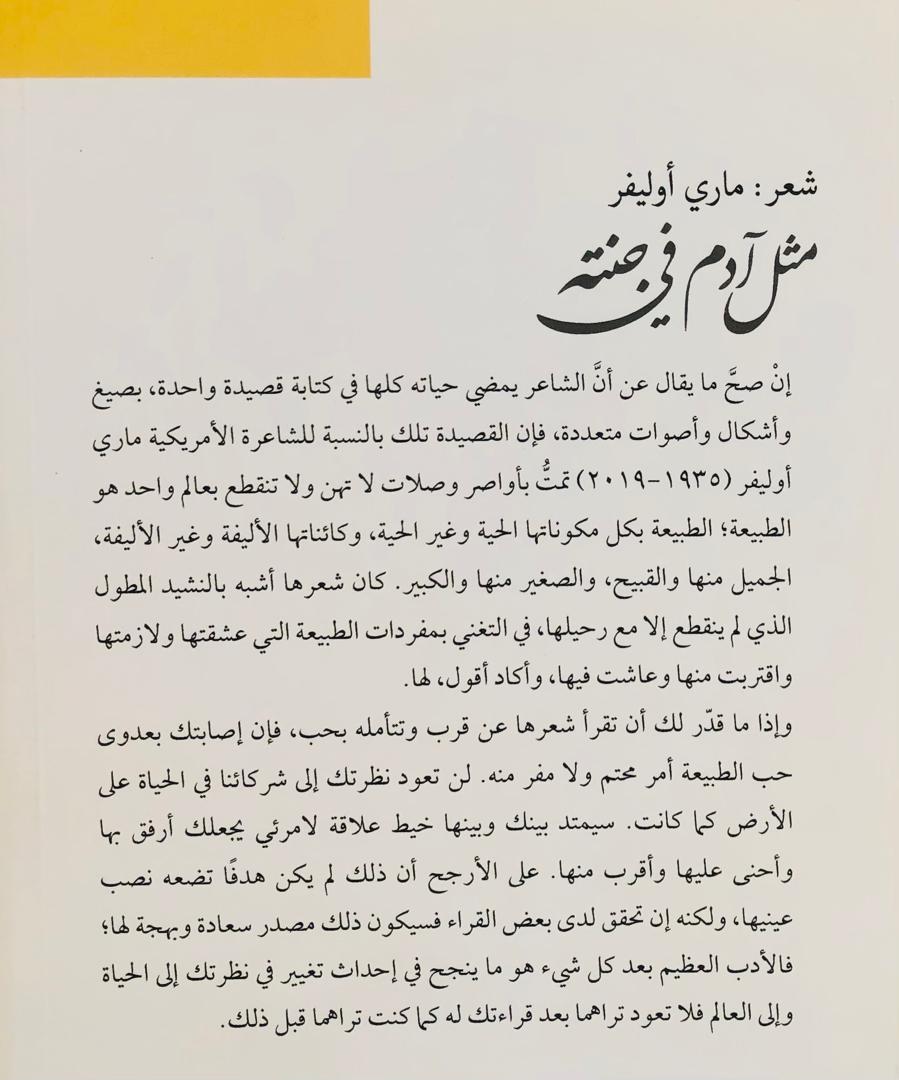 شعر: ماري أوليفر
مثل آدم في جنته
إنْ صحَّ ما يقال عن أنَّ الشاعر يمضي حياته كلها في كتابة قصيدة واحدة، بصيغ
وأشكال وأصوات متعددة، فإن القصيدة تلك بالنسبة للشاعرة الأمريكية ماري
أوليفر (١٩٣٥-٢٠١٩) تمتُّ بأواصر وصلات لا تهن ولا تنقطع بعالم واحد هو
الطبيعة؛ الطبيعة بكل مكوناتها الحية وغير الحية، وكائناتها الأليفة وغير الأليفة،
الجميل منها والقبيح، والصغير منها والكبير. كان شعرها أشبه بالنشيد المطول
الذي لم ينقطع إلا مع رحيلها، في التغني بمفردات الطبيعة التي عشقتها ولازمتها
واقتربت منها وعاشت فيها، وأكاد أقول، لها.
وإذا ما قدّر لك أن تقرأ شعرها عن قرب وتتأمله بحب، فإن إصابتك بعدوى
حب الطبيعة أمر محتم ولا مفر منه. لن تعود نظرتك إلى شركائنا في الحياة على
الأرض كما كانت. سيمتد بينك وبينها خيط علاقة لامرئي يجعلك أرفق بها
وأحنى عليها وأقرب منها. على الأرجح أن ذلك لم يكن هدفًا تضعه نصب
عينيها، ولكنه إن تحقق لدى بعض القراء فسيكون ذلك مصدر سعادة وبهجة لها؛
فالأدب العظيم بعد كل شيء هو ما ينجح في إحداث تغيير في نظرتك إلى الحياة
وإلى العالم فلا تعود تراهما بعد قراءتك له كما كنت تراهما قبل ذلك.